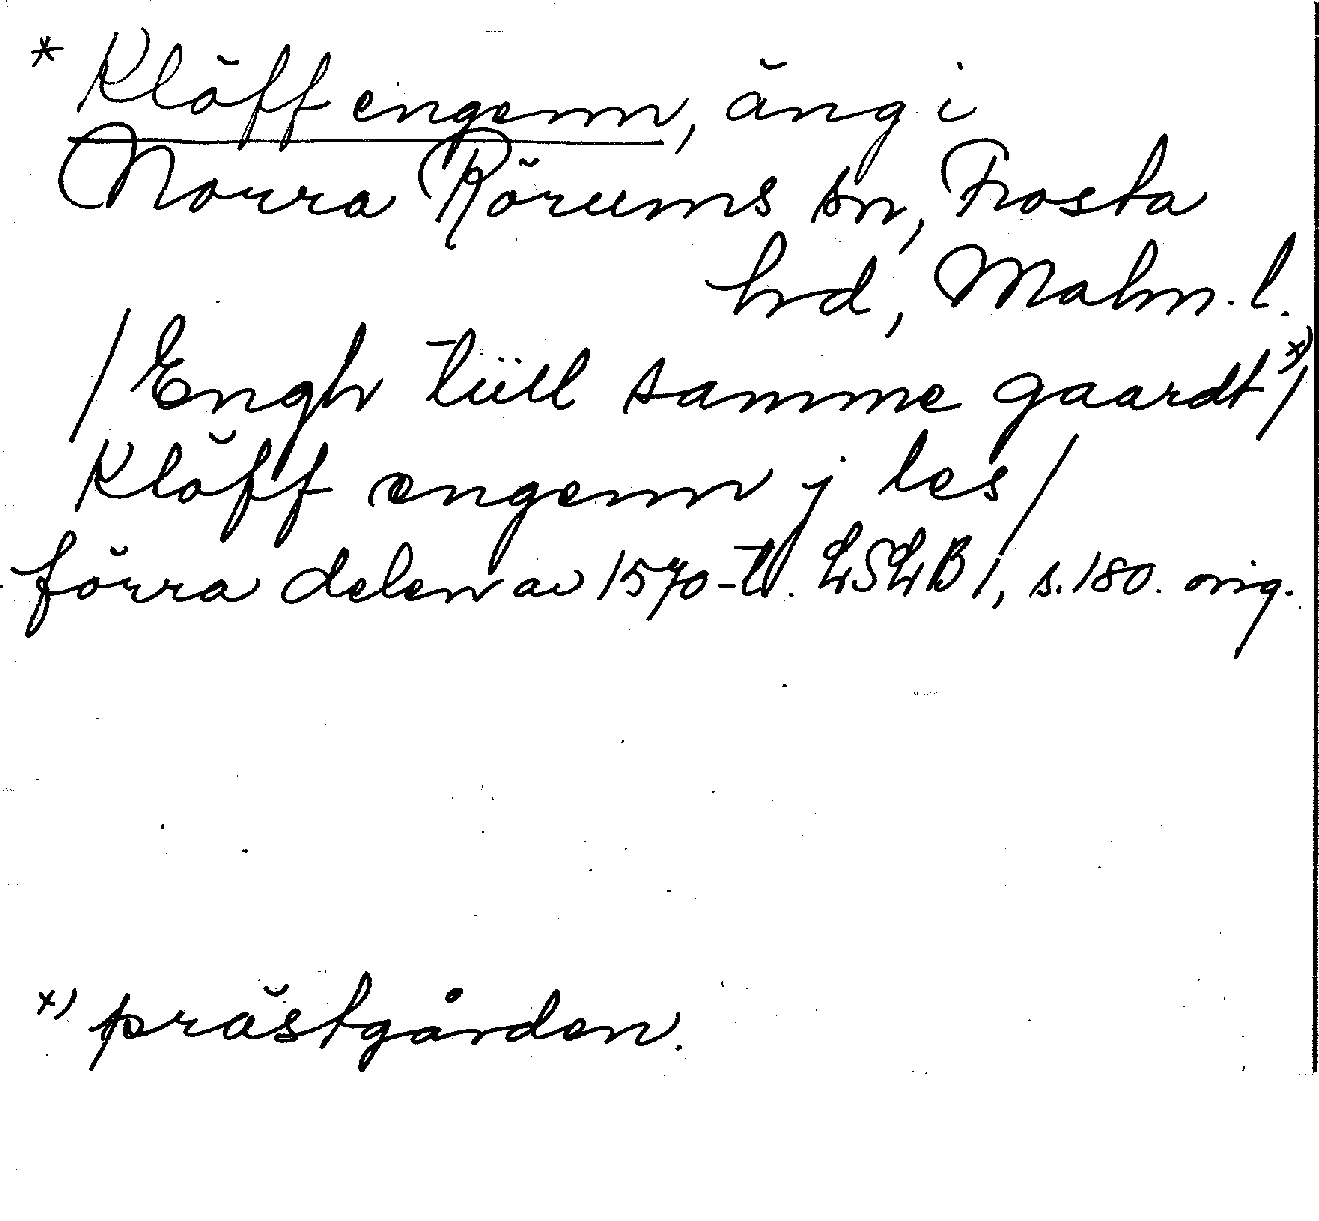 * Klöff engenn, äng i
Norra Rörums sn, Frosta
hrd, Malm. l.
/Engh tüll samme gaardt*)/
Klöff engenn j les/
förra delen av 1570-t. LSLB 1, s. 180. orig.
*) prästgården.